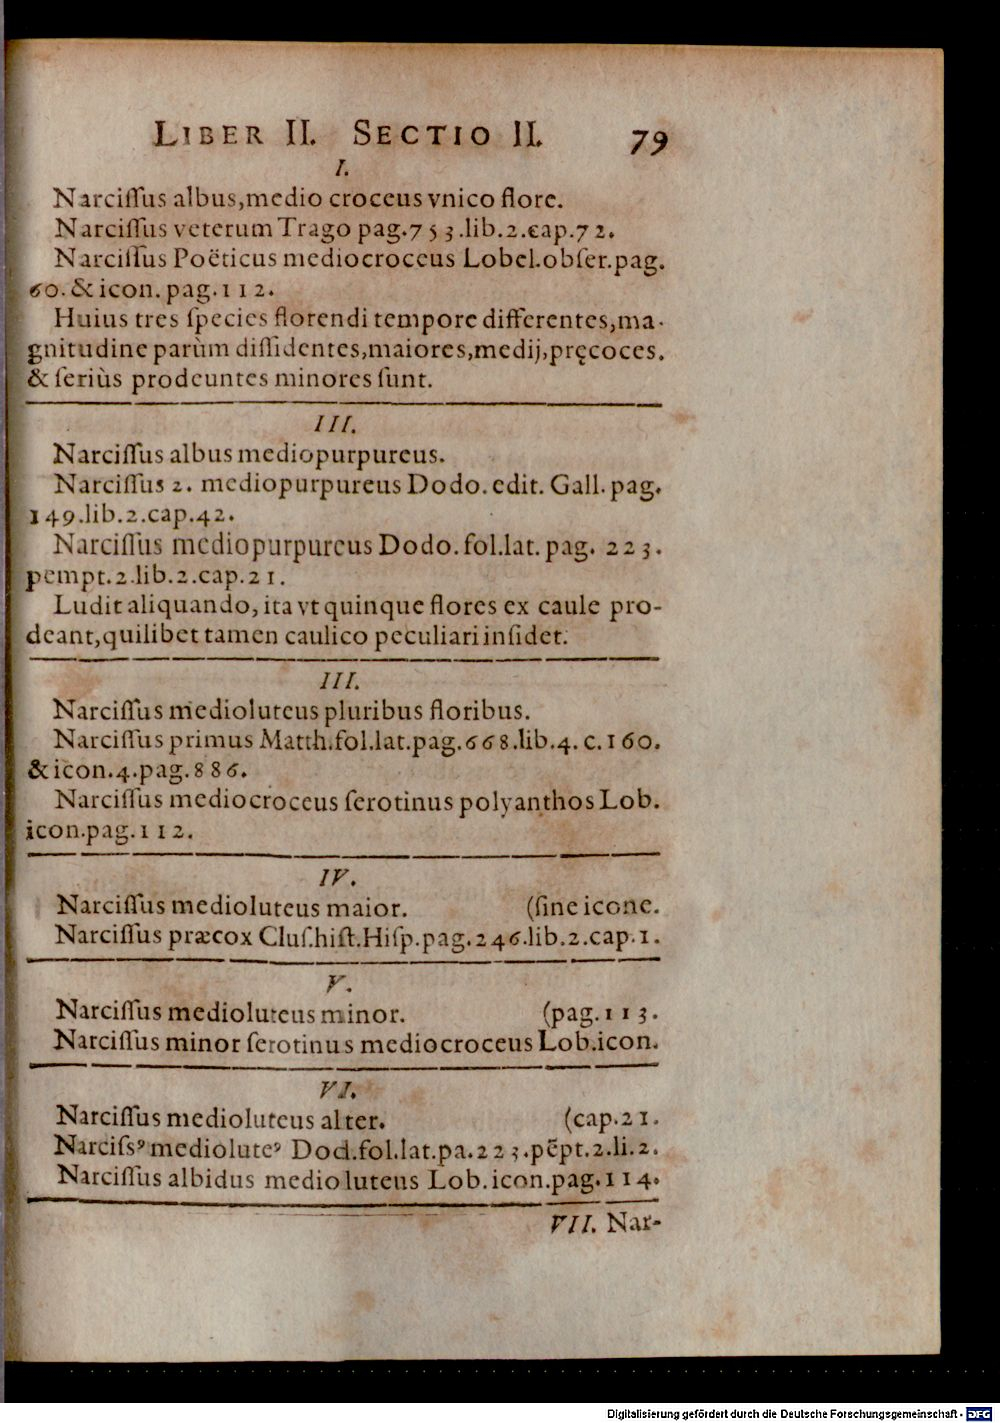 LIBER II. SECTIO II. 79
I.
Narciſſus albus,medio croceus vnico flore.
Narciſſus veterum Trago pag.753.lib.2.cap.72.
Narciſſus Poëticus mediocroceus Lobel.obſer.pag.
60.& icon.pag.112.
Huius tres ſpecies florendi tempore differentes,ma-
gnitudine parùm diſſidentes,maiores,medij,pręcoces.
& ſeriùs prodeuntes minores ſunt.
III.
Narciſſus albus mediopurpureus.
Narciſſus 2. mediopurpureus Dodo.edit. Gall.pag.
149.lib.2.cap.42.
Narciſſus mediopurpureus Dodo.fol.lat.pag. 223.
pempt.2.lib.2.cap.21.
Ludit aliquando, ita vt quinque flores ex caule pro-
deant,quilibet tamen caulico peculiari inſidet.
III.
Narciſſus medioluteus pluribus floribus.
Narciſſus primus Matth.fol.lat.pag.668.lib.4.c.160.
& icon.4.pag.886.
Narciſſus mediocroceus ſerotinus polyanthos Lob.
icon.pag.112.
IV.
Narciſſus medioluteus maior. (ſine icone.
Narciſſus præcox Cluſ.hiſt.Hiſp.pag.246.lib.2.cap.1.
V.
Narciſſus medioluteus minor. (pag.113.
Narciſſus minor ſerotinus mediocroceus Lob.icon.
VI.
Narciſſus medioluteus alter. (cap.21.
Narciſsꝰ medioluteꝰ Dod.fol.lat.pa.223.pẽpt.2.li.2.
Narciſſus albidus medioluteus Lob.icon.pag.114.
VII. Nar-
Digitalisierung gefördert durch die Deutsche Forschungsgemeinschaft - DFG